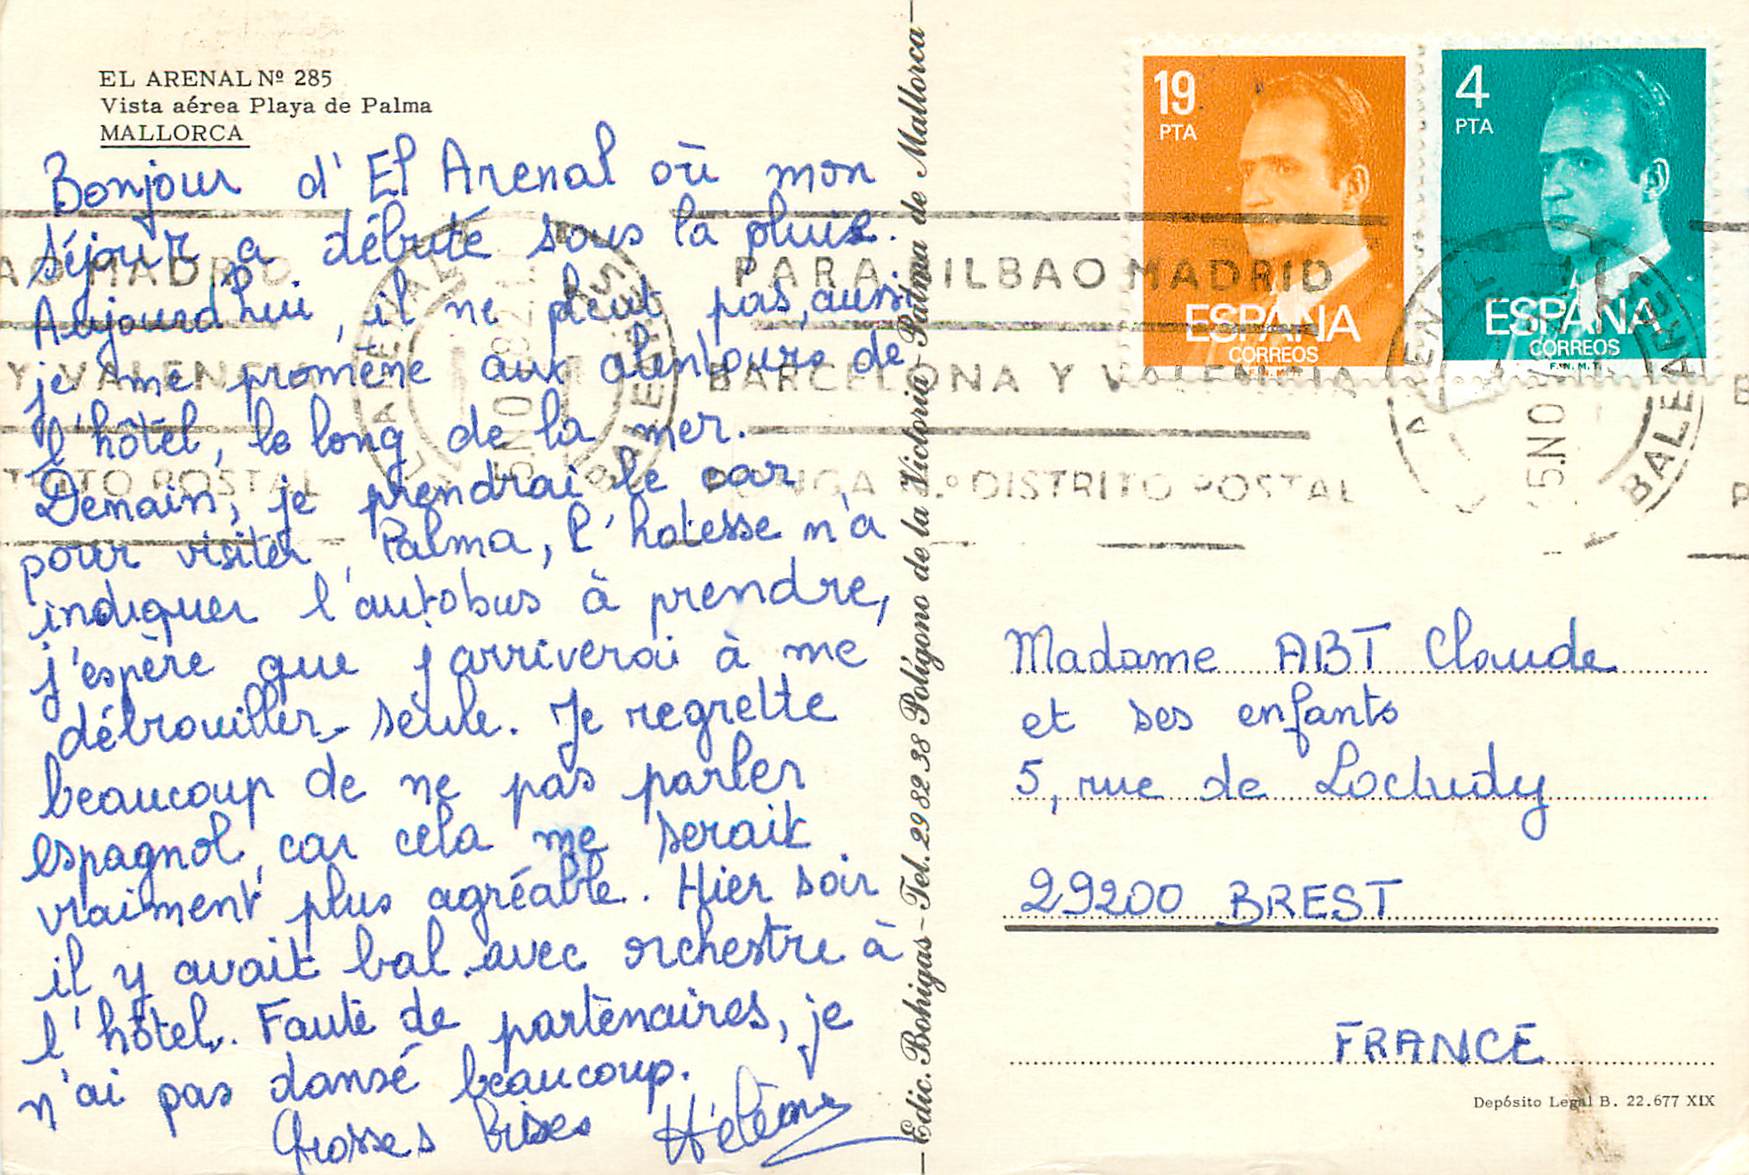 EL ARENAL Nº 285
Vista aérea Playa de Palma
MALLORCA
Bonjour d'El Arenal où mon
séjour a débuté sous la pluie.
Aujourd'hui, il ne pleut pas, aussi
je me promène aux alentours de
l'hôtel, le long de la mer.
Demain, je prendrai le car
pour visiter Palma, l'hotesse m'a
indiquer l'autobus à prendre,
j'espère que j'arriverai à me
débrouiller seule. Je regrette
beaucoup de ne pas parler
espagnol, car cela me serait
vraiment plus agréable. Hier soir
il y avait bal avec orchestre à
l'hôtel. Faute de partenaires, je
n'ai pas dansé beaucoup.
Grosses bises Hélène
Edic. Bohigas - Tel. 29 82 38 Polígono de la Victoria - Palma de Mallorca
19
PTA
ESPAÑA
CORREOS
F.N.M.T.
4
PTA
ESPAÑA
CORREOS
F.N.M.T.
AO MADRID
Y VALENC
TRITO POSTAL
ARENAL
BALEARES
PARA BILBAO MADRID
BARCELONA Y VALENCIA
PONGA DISTRITO POSTAL
ARENAL
15.NO
BALEARES
Madame ABT Claude
et ses enfants
5, rue de Loctudy
29200 BREST
FRANCE
Depósito Legal B. 22.677 XIX